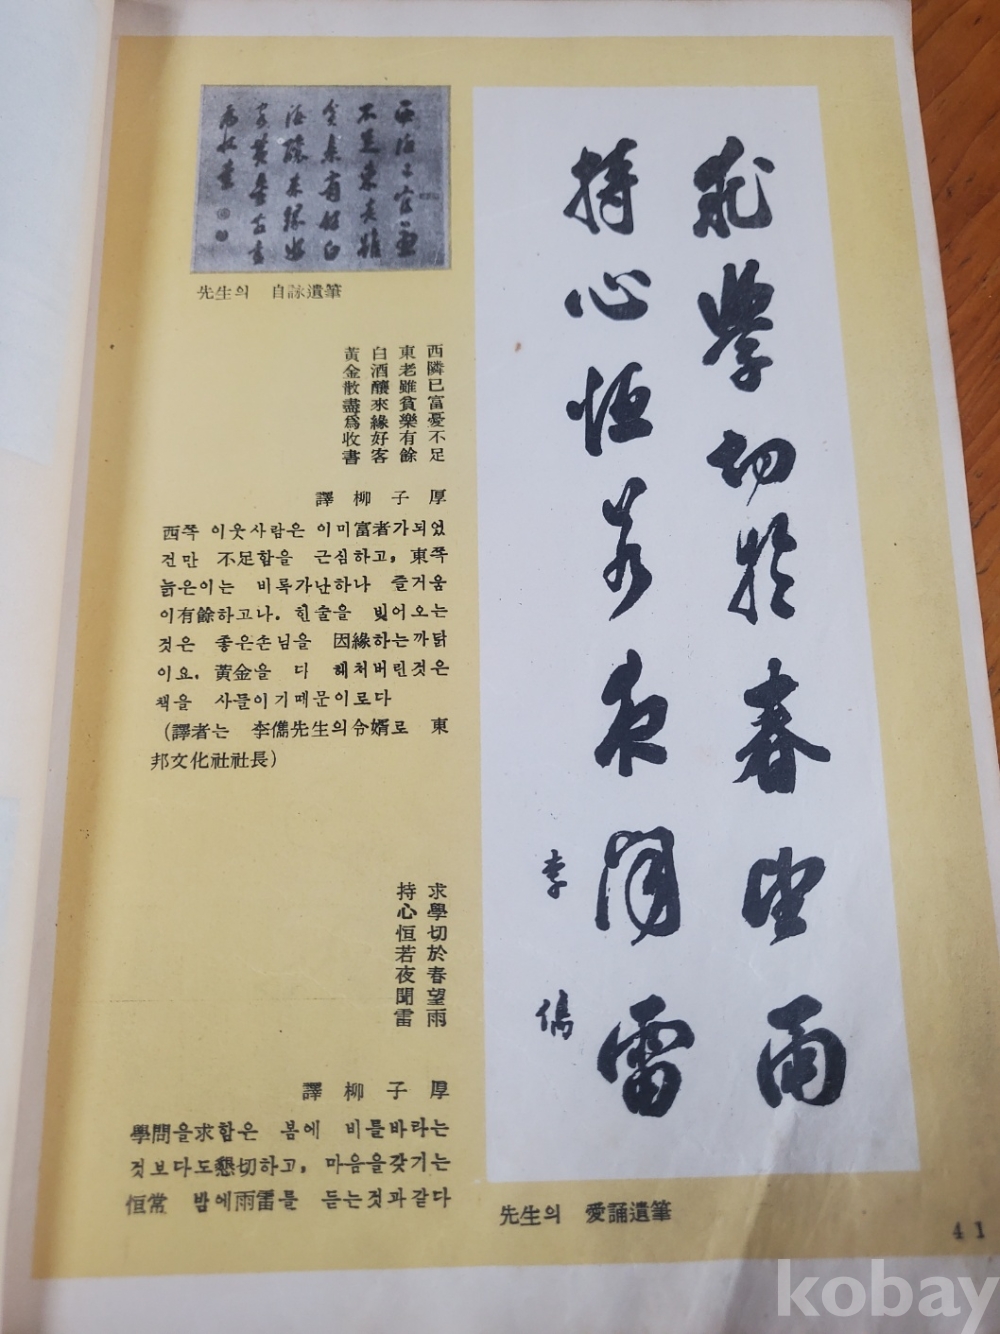 求學切於春望雨
持心恒若夜聞雷
李儁
先生의 愛誦遺筆
先生의 自詠遺筆
西隣已富憂不足
東老雖貧樂有餘
白酒釀來緣好客
黃金散盡爲收書
厚子柳譯
西쪽 이웃사람은 이미富者가되었
건만 不足함을 근심하고, 東쪽
늙은이는 비록가난하나 즐거움
이有餘하고나. 흰술을 빚어오는
것은 좋은손님을 因緣하는까닭
이요. 黃金을 다 헤처버린것은
책을 사들이기때문이로다
(譯者는 李儁先生의令婿로 東
邦文化社社長)
求學切於春望雨
持心恒若夜聞雷
厚子柳譯
學問을求함은 봄에 비를바라는
것보다도懇切하고, 마음을갖기는
恒常 밤에雨雷를 듣는것과같다
41
kobay